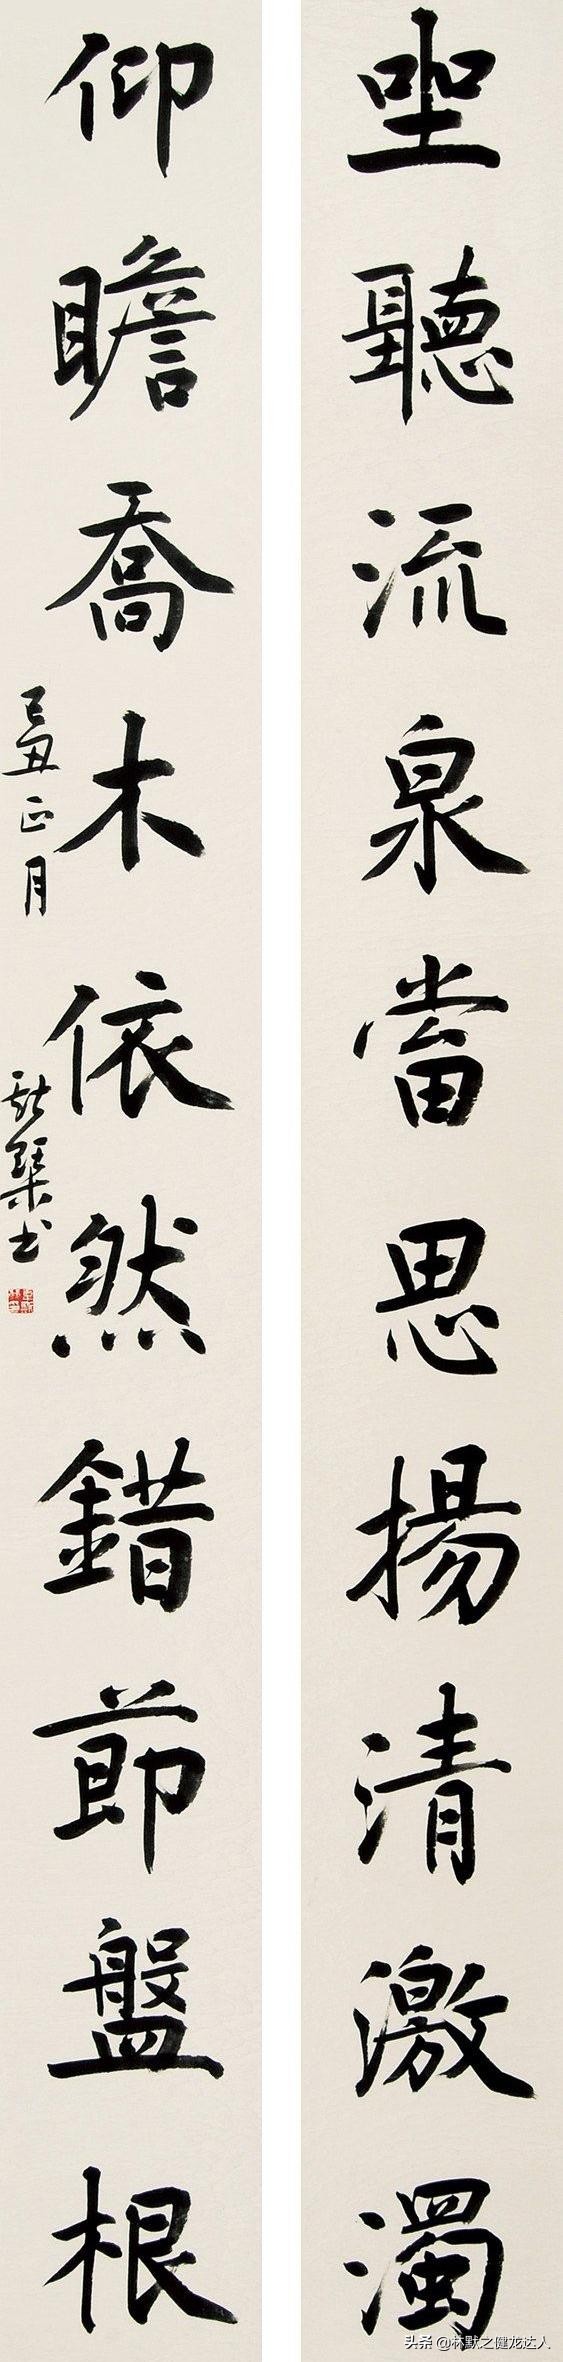 坐聽流泉當思揚清激濁
仰瞻喬木依然錯節盤根
己丑正月
書
头条 @林默之健龙达人